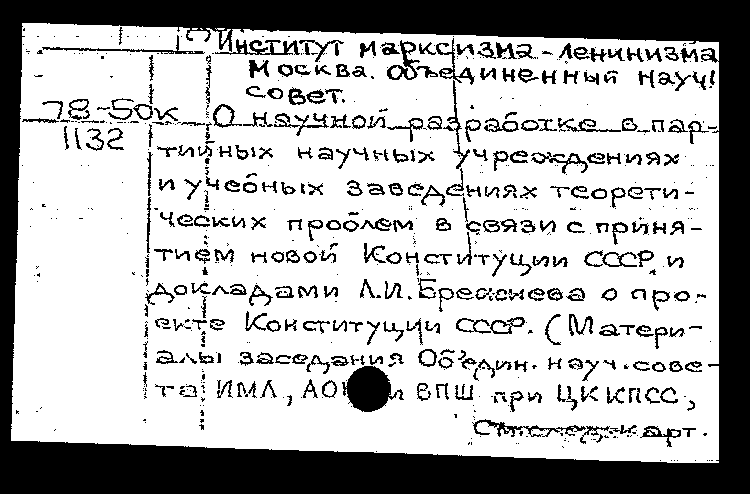 Институт марксизма-ленинизма
Москва. Объединенный науч.
совет.
78-50к
1132
О научной разработке в пар-
тийных научных учреждениях
и учебных заведениях теорети-
ческих проблем в связи с приня-
тием новой Конституции СССР и
докладами Л.И.Брежнева о про-
екте Конституции СССР. (Матери-
алы заседания Объедин. науч.сове-
та ИМЛ, и ВПШ при ЦК КПСС,
См.след.карт.